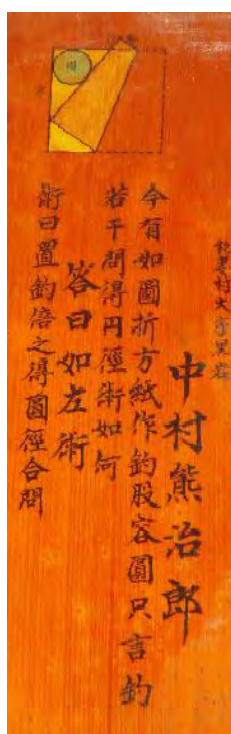 村大字
中村熊治郎
今有如圖折方紙作釣股容圓只言釣
若干問得円徑術如何
答曰如左術
術曰置釣倍之得圓徑合問